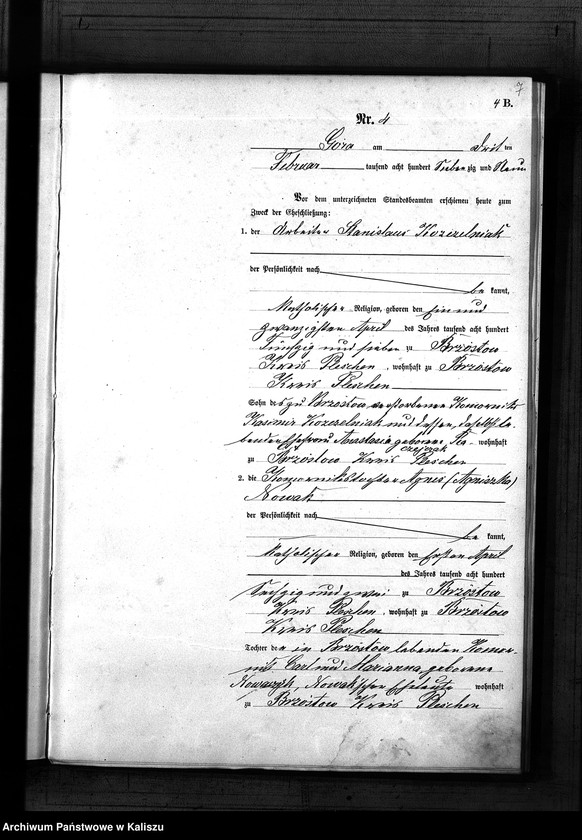 7
4 B.
Nr. 4
Góra am Dritten
Februar tausend acht hundert Siebenzig und Neun
Vor dem unterzeichneten Standesbeamten erschienen heute zum
Zweck der Eheschließung:
1. der Arbeiter Stanislaus Kozezelniak
der Persönlichkeit nach
be kannt,
katholischer Religion, geboren den ein und
zwanzigsten April des Jahres tausend acht hundert
Fünfzig und sieben zu Brzóstow
Kreis Pleschen, wohnhaft zu Brzóstow
Kreis Pleschen
Sohn des zu Brzóstow verstorbenen Komorniks
Kasimir Kozezelniak und dessen daselbst le-
benden Ehefrau Anastasia geborene Ka- wohnhaft
czejczak
zu Brzóstow Kreis Pleschen
2. die Komornikstochter Agnes (Agnieszka)
Nowak
der Persönlichkeit nach
be kannt,
katholischer Religion, geboren den ersten April
des Jahres tausend acht hundert
sechzig und zwei zu Brzóstow
Kreis Pleschen, wohnhaft zu Brzóstow
Kreis Pleschen
Tochter der in Brzóstow lebenden Komor-
niks Carl und Marianna, geborene
Nowaczyk, Nowak'schen Eheleute wohnhaft
zu Brzóstow Kreis Pleschen
Archiwum Państwowe w Kaliszu